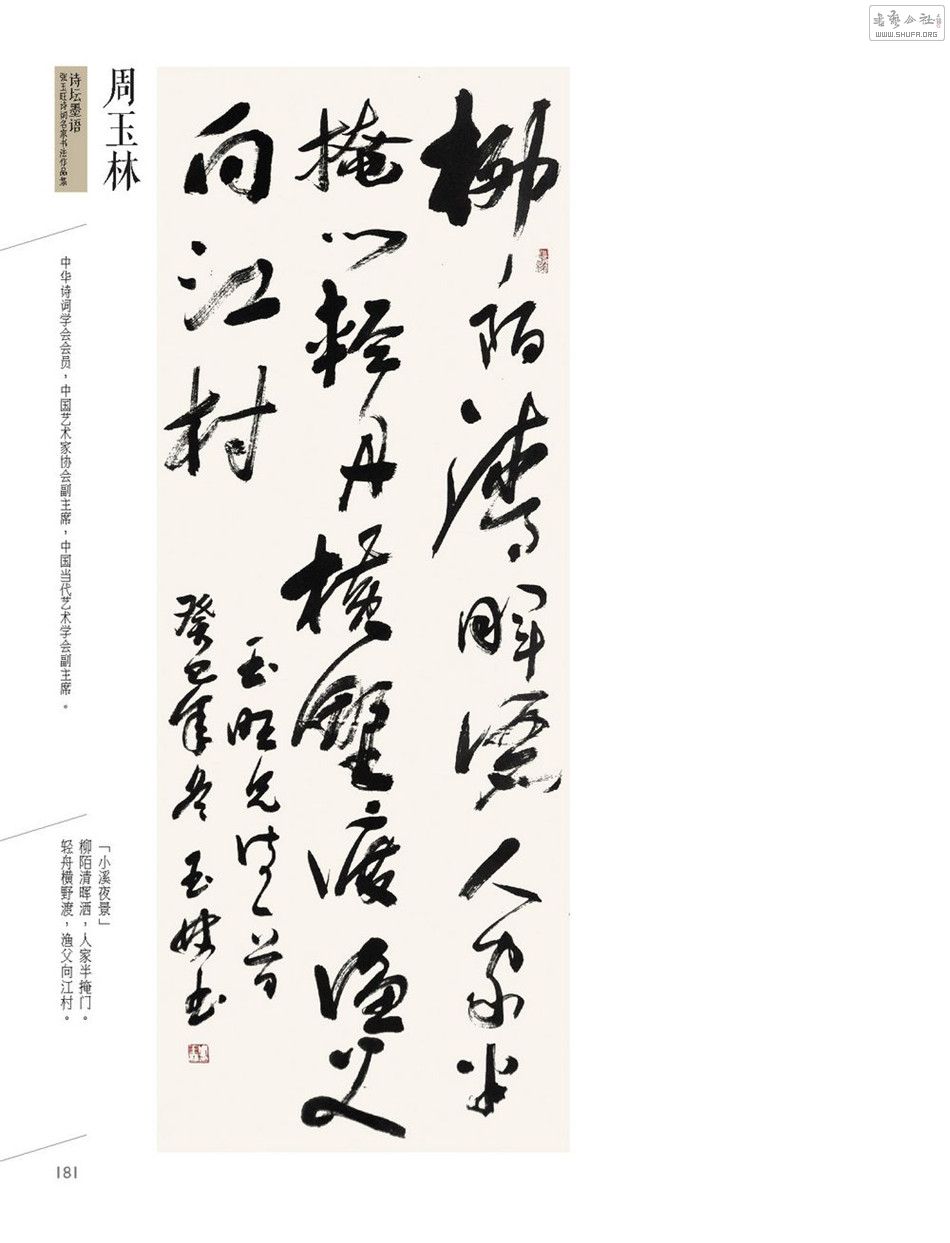 书艺公社
WWW.SHUFA.ORG
周玉林
诗坛墨语
张玉旺诗词名家书法作品集
中华诗词学会会员，中国艺术家协会副主席，中国当代艺术学会副主席。
「小溪夜景」
柳陌清晖洒，人家半掩门。
轻舟横野渡，渔父向江村。
柳陌清暉洒人家半
掩门轻舟横野渡渔父
向江村
玉旺兄诗一首
癸巳年冬玉林书
181